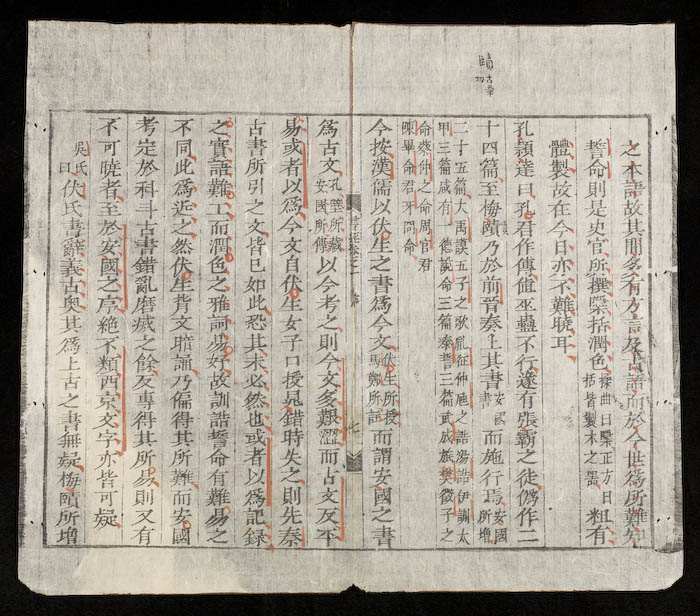 賾
之本語故其間多有方言及古語而於今世為所難
誓命則是史官所撰檃括潤色檃曲曰檃正方曰括皆製木之器粗有
體製故在今日亦不難曉耳
孔穎達曰孔君作傳值巫蠱不行遂有張霸之徒偽作二
十四篇至梅賾乃於前晉奏上其書安國而施行焉安國所增
二十五篇大禹謨五子之歌胤征仲虺之誥湯誥伊訓太
甲三篇咸有一德說命三篇泰誓三篇武成旅獒微子之
命蔡仲之命周官君
陳畢命君牙冏命
今按漢儒以伏生之書為今文伏生所授馬鄭所註而謂安國之書
書經卷之一 序 七
為古文孔壁所藏安國所傳以今考之則今文多艱澀而古文反平
易或者以為今文自伏生女子口授晁錯時失之則先秦
古書所引之文皆已如此恐其未必然也或者以為記錄
之實語難工而潤色之雅詞易好故訓誥誓命有難易之
不同此為近之然伏生背文暗誦乃偏得其所難而安國
考定於科斗古書錯亂磨滅之餘反專得其所易則又有
不可曉者至於安國之序絕不類西京文字亦皆可疑
吳氏曰伏氏書辭義古奧其為上古之書無疑梅賾所增